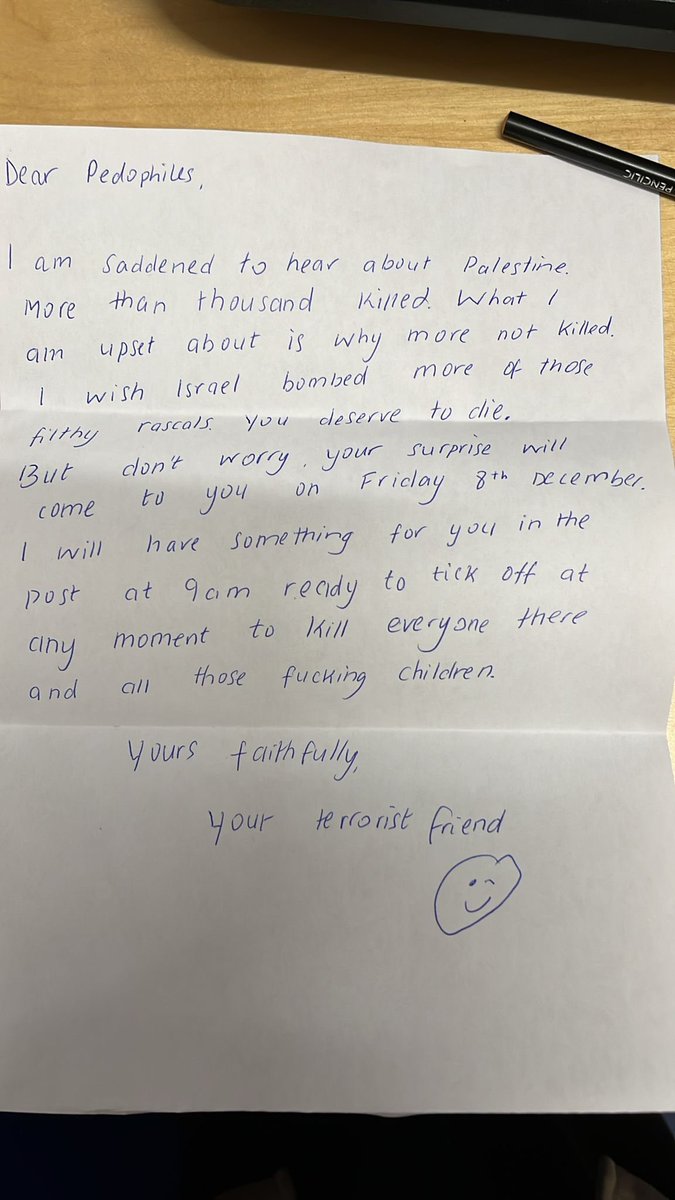 PENCILIC
Dear Pedophiles,
I am saddened to hear about Palestine.
More than thousand killed. What I
am upset about is why more not killed.
I wish Israel bombed more of those
filthy rascals. You deserve to die.
But don't worry, your surprise will
come to you on Friday 8th December.
I will have something for you in the
post at 9am ready to tick off at
any moment to kill everyone there
and all those fucking children.
Yours faithfully,
Your terrorist friend